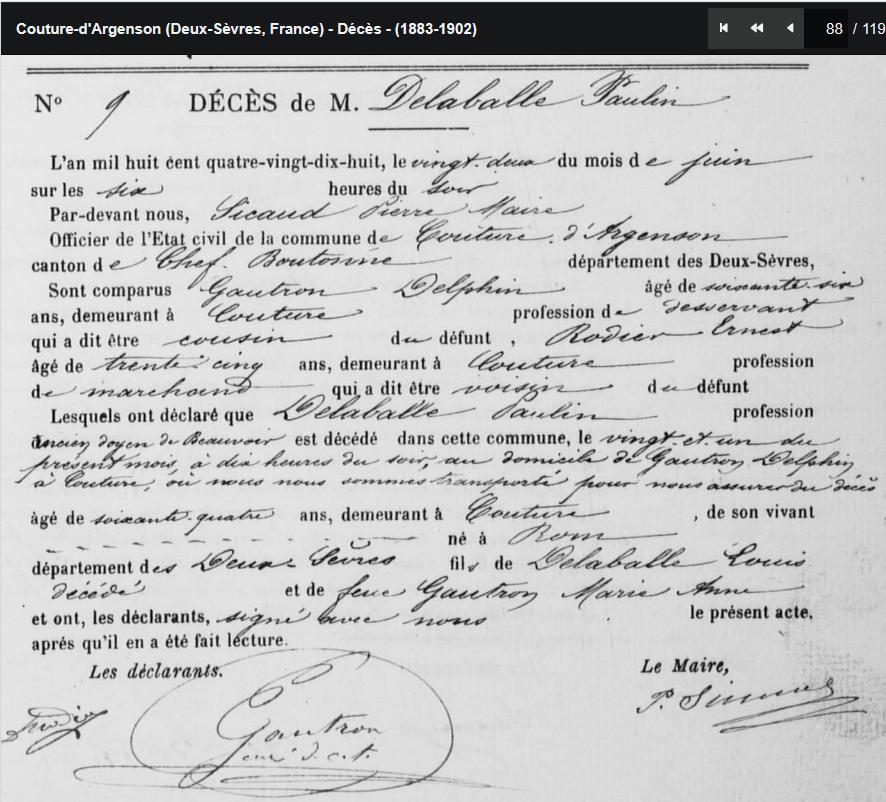 Couture-d'Argenson (Deux-Sèvres, France) - Décès - (1883-1902) 88 / 119
N° 9 DÉCÈS de M. Delaballe Paulin
L'an mil huit cent quatre-vingt-dix-huit, le vingt-deux du mois de juin
sur les six heures du soir
Par-devant nous, Sicaud Pierre Maire
Officier de l'Etat civil de la commune de Couture-d'Argenson
canton de Chef-Boutonne département des Deux-Sèvres,
Sont comparus Gautron Delphin âgé de soixante-six
ans, demeurant à Couture profession de desservant
qui a dit être cousin du défunt, Rodier Ernest
âgé de trente-cinq ans, demeurant à Couture profession
de marchand qui a dit être voisin du défunt
Lesquels ont déclaré que Delaballe Paulin profession
ancien doyen de Beauvoir est décédé dans cette commune, le vingt-et-un du
présent mois, à dix heures du soir, au domicile de Gautron Delphin
à Couture, où nous nous sommes transporté pour nous assurer du décès
âgé de soixante-quatre ans, demeurant à Couture, de son vivant
né à Rom
département des Deux-Sèvres fils de Delaballe Louis
décédé et de feue Gautron Marie Anne
et ont, les déclarants, signé avec nous le présent acte,
après qu'il en a été fait lecture.
Les déclarants. Le Maire,
Gautron